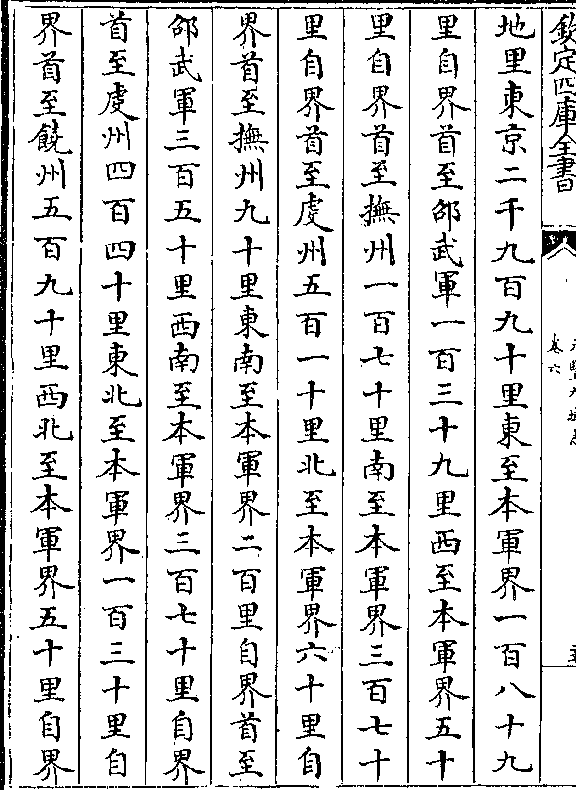 欽定四庫全書
卷六
地里東京二千九百九十里東至本軍界一百八十九
里自界首至邵武軍一百三十九里西至本軍界五十
里自界首至撫州一百七十里南至本軍界三百七十
里自界首至䖍州五百一十里北至本軍界六十里自
界首至撫州九十里東南至本軍界二百里自界首至
邵武軍三百五十里西南至本軍界三百七十里自界
首至䖍州四百四十里東北至本軍界一百三十里自
界首至饒州五百九十里西北至本軍界五十里自界